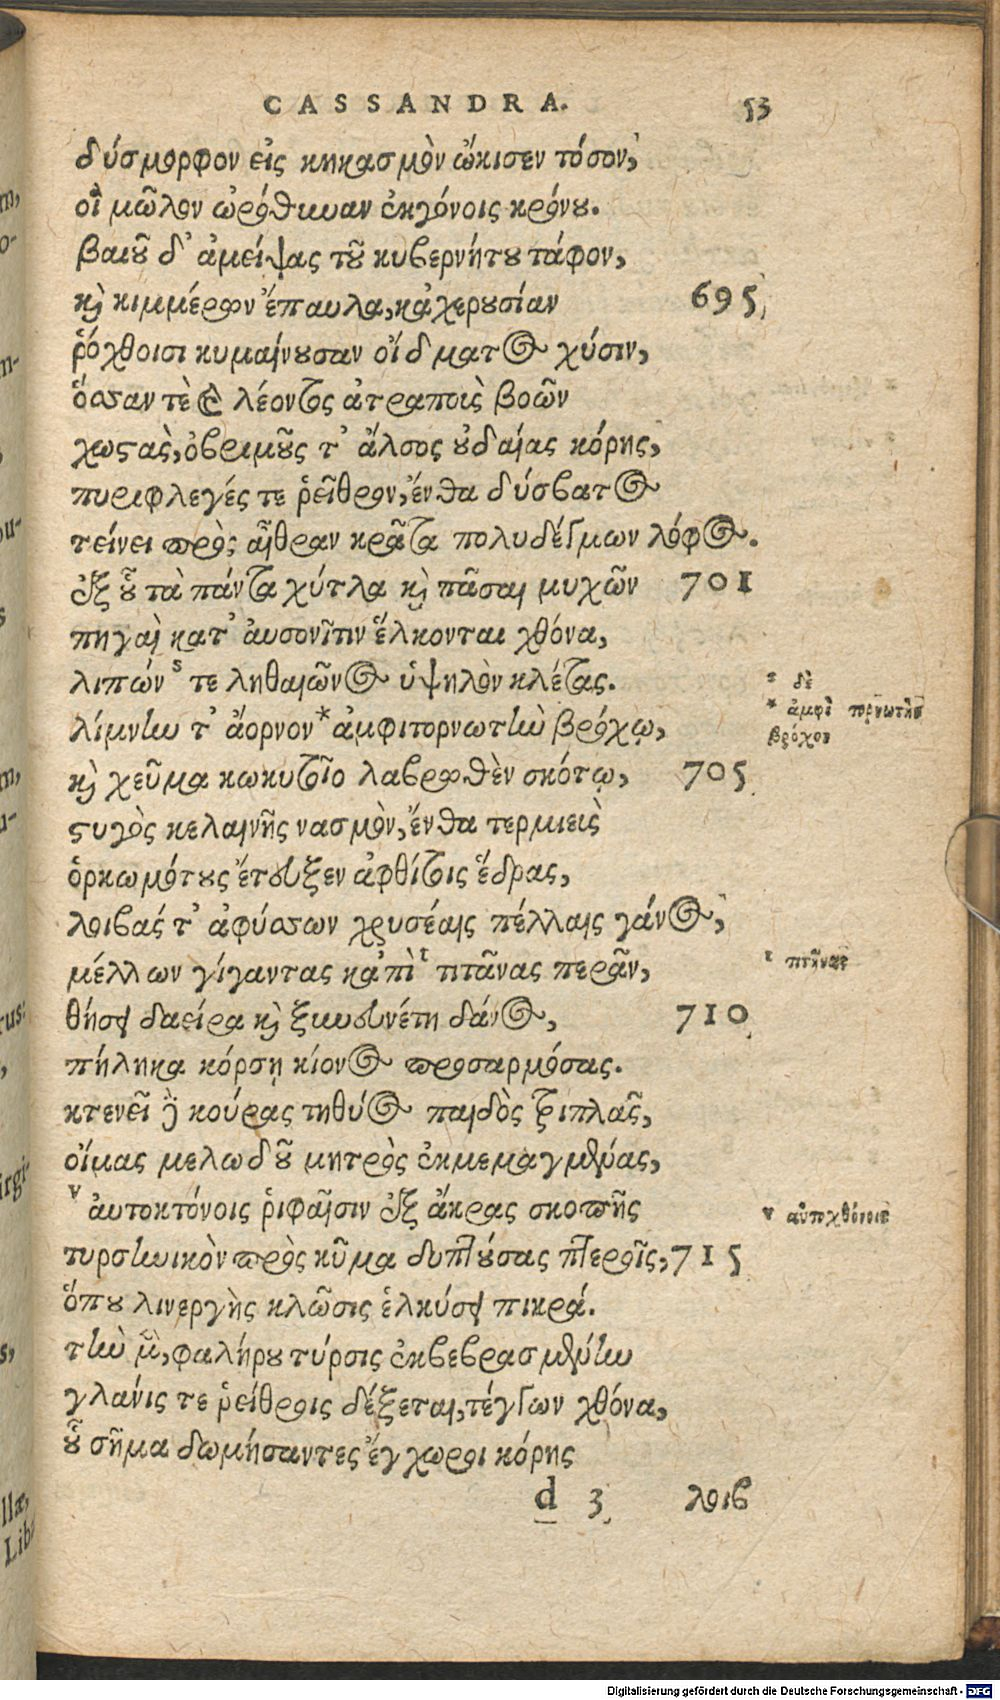 CASSANDRA. 53
δύσμορφον εἰς κηκασμὸν ᾤκισεν τόσον,
οἳ μῶλον ὠρόθιωαν ἐκγόνοις κρόνου.
βαιοῦ δ' ἀμείψας τοῦ κυβερνήτου τάφον,
καὶ κιμμέρων ἔπαυλα, κἀχερουσίαν 695
ῥόχθοισι κυμαίνουσαν οἴδματος χύσιν,
ὄσσαν τὲ καὶ λέοντος ἀτραποὺς βοῶν
χωστὰς, ὀβριμοῦς τ' ἄλσος οὐδαίας κόρης,
πυριφλεγές τε ῥεῖθρον, ἔνθα δύσβατος
τείνει πρὸς αἴθραν κρᾶτα πολυδέγμων λόφος.
ἐξ οὗ τὰ πάντα χύτλα καὶ πᾶσαι μυχῶν 701
πηγαὶ κατ' αὐσονῖτιν ἕλκονται χθόνα,
λιπών ˢ τε ληθαιῶνος ὑψηλὸν κλέτας.
λίμνην τ' ἄορνον * ἀμφιτορνωτὴν βρόχῳ,
καὶ χεῦμα κωκυτοῖο λαβρωθὲν σκότῳ, 705
στυγὸς κελαινῆς νασμὸν, ἔνθα τερμιεὺς
ὁρκωμότους ἔτευξεν ἀφθίτοις ἕδρας,
λοιβάς τ' ἀφύσσων χρυσέαις πέλλαις γάνος,
μέλλων γίγαντας κἀπὶ ᵗ τιτᾶνας περᾶν,
θήσει δαείρα καὶ ξυνευνέτῃ δάνος, 710
πήληκα κόρσῃ κίονος προσαρμόσας.
κτενεῖ δὲ κούρας τηθύος παιδὸς τριπλᾶς,
οἴμας μελωδοῦ μητρὸς ἐκμεμαγμένας,
ᵛ αὐτοκτόνοις ῥιφαῖσιν ἐξ ἄκρας σκοπῆς
τυρσηνικὸν πρὸς κῦμα δυπτούσας πτεροῖς, 715
ὅπου λινεργὴς κλῶσις ἑλκύσει πικρά.
τὴν μὲν, φαλήρου τύρσις ἐκβεβρασμένην
γλάνις τε ῥείθροις δέξεται, τέγγων χθόνα,
οὗ σῆμα δωμήσαντες ἔγχωροι κόρης
d 3 λοιβ
ˢ δὲ
* ἀμφὶ τορνωτὴν
βρόχου
ᵗ πτῆνας
ᵛ αὐτοχθόνοις
Digitalisierung gefördert durch die Deutsche Forschungsgemeinschaft - DFG